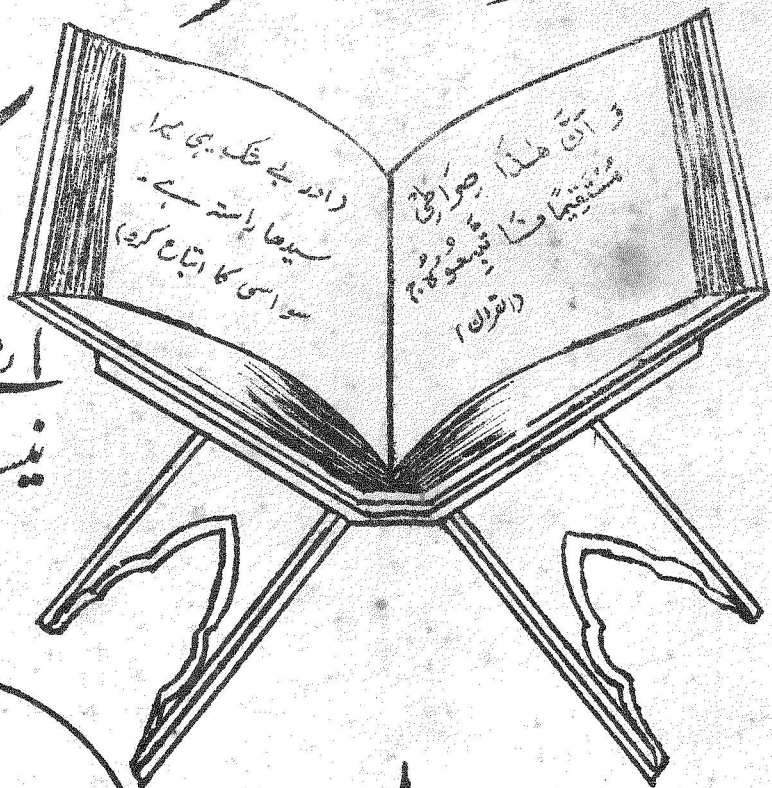 وَ اَنَّ ھٰذَا صِرَاطِیْ
مُسْتَقِیْمًا فَا تَّبِعُوْہُ ج
(القرآن)
(اور بے شک یہی میرا
سیدھا راستہ ہے۔
سو اسی کا اتباع کرو)